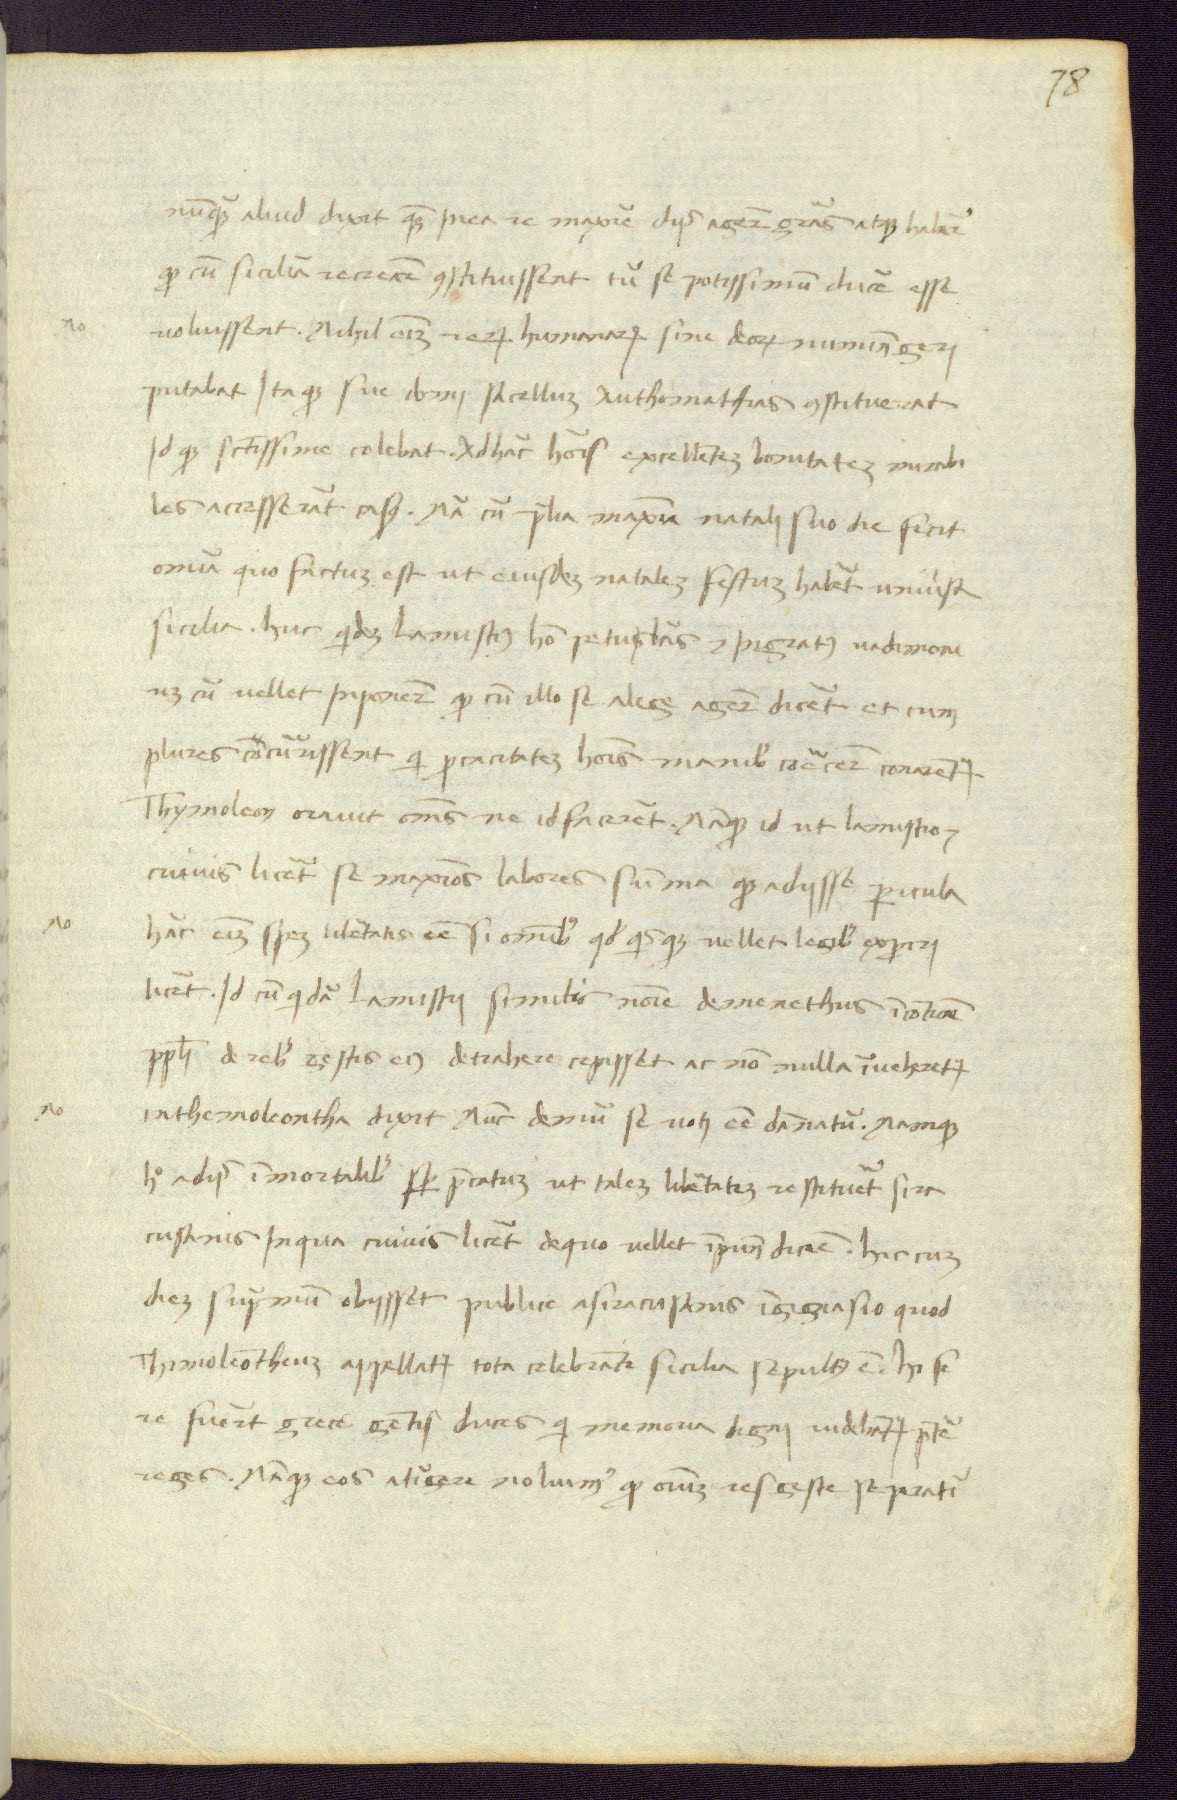 78
nūquā aliud dixit quā in ea re maxīe dijs agerē grās atque habere
qd cū siciliā recreare ꝯstituissent tū se potissimū ducē esse
no
voluissent. Nihil eniꝫ reꝝ humanaꝝ sine deoꝝ numine geri
putabat Itaqꝫ sue domi sacelluꝫ Authomathias ꝯstituerat
Idqꝫ sctissime colebat. Ad hāc hoīs excellenteꝫ bonitateꝫ mirabi
les accesserāt casus. Nā cū p̄lia maxīa natali suo die fecit
omīa quo factuꝫ est ut eiusdeꝫ nataleꝫ festuꝫ habet̄ univ̄sa
sicilia. huic qdeꝫ Lamistiꝰ hō petulās ⁊ ingratꝰ vadimoni
uꝫ cū vellet inponerē qd cū illo se a lege agerē dicēt et cum
plures cōcurrissent qi procacitateꝫ hoīs manibꝰ coercerē conarent̄
Thymoleon oravit oms ne id facerēt. Nāqꝫ id ut lamistio ⁊
cuivis licēt se maxīos labores sūmaqꝫ adijsse pericula
no
hāc eniꝫ speꝫ libertatis eē si omībꝰ qd quisqꝫ vellet legibꝰ experiri
licēt. Id cū qidā Lamistij similis noīe demenethus ī cōtione
ppl̄i de rebꝰ gestis eiꝰ detrahere cepisset ac nō nulla īvheret̄
no
in themoleontha dixit Nūc demū se voti eē dānatū. Namqꝫ
hͦ a dijs īmortalibꝰ sp̄ p̄catuꝫ ut taleꝫ libertateꝫ restituēt sira
cusanis in qua cuivis licēt de quo vellet īpune dicēre. hic cuꝫ
dieꝫ supremū obijsset publice a siracusanis ī gignasio quod
Thimoleōtheuꝫ appellat̄ tota celebrante sicilia sepultꝰ ē. hi fe
re fuerūt grece gentis duces qi memoria digni videbant̄ p̄ter
reges. Nāqꝫ eos atingere noluimꝰ qd omniꝫ res geste separati